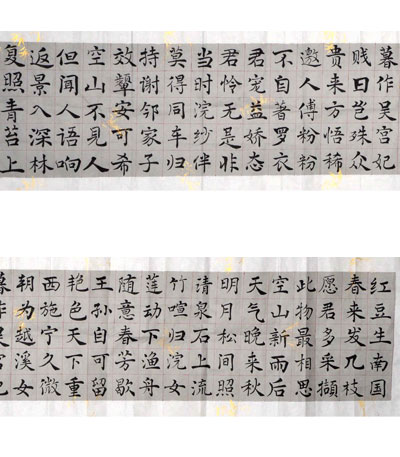 暮作吴宫妃
贱日岂殊众
贵来方悟稀
邀人傅粉粉
不自著罗衣
君宠益娇态
君怜无是非
当时浣纱伴
莫得同车归
持谢邻家子
效颦安可希
空山不见人
但闻人语响
返景入深林
复照青苔上
红豆生南国
春来发几枝
愿君多采撷
此物最相思
空山新雨后
天气晚来秋
明月松间照
清泉石上流
竹喧归浣女
莲动下渔舟
随意春芳歇
王孙自可留
艳色天下重
西施宁久微
朝为越溪女
暮作吴宫妃